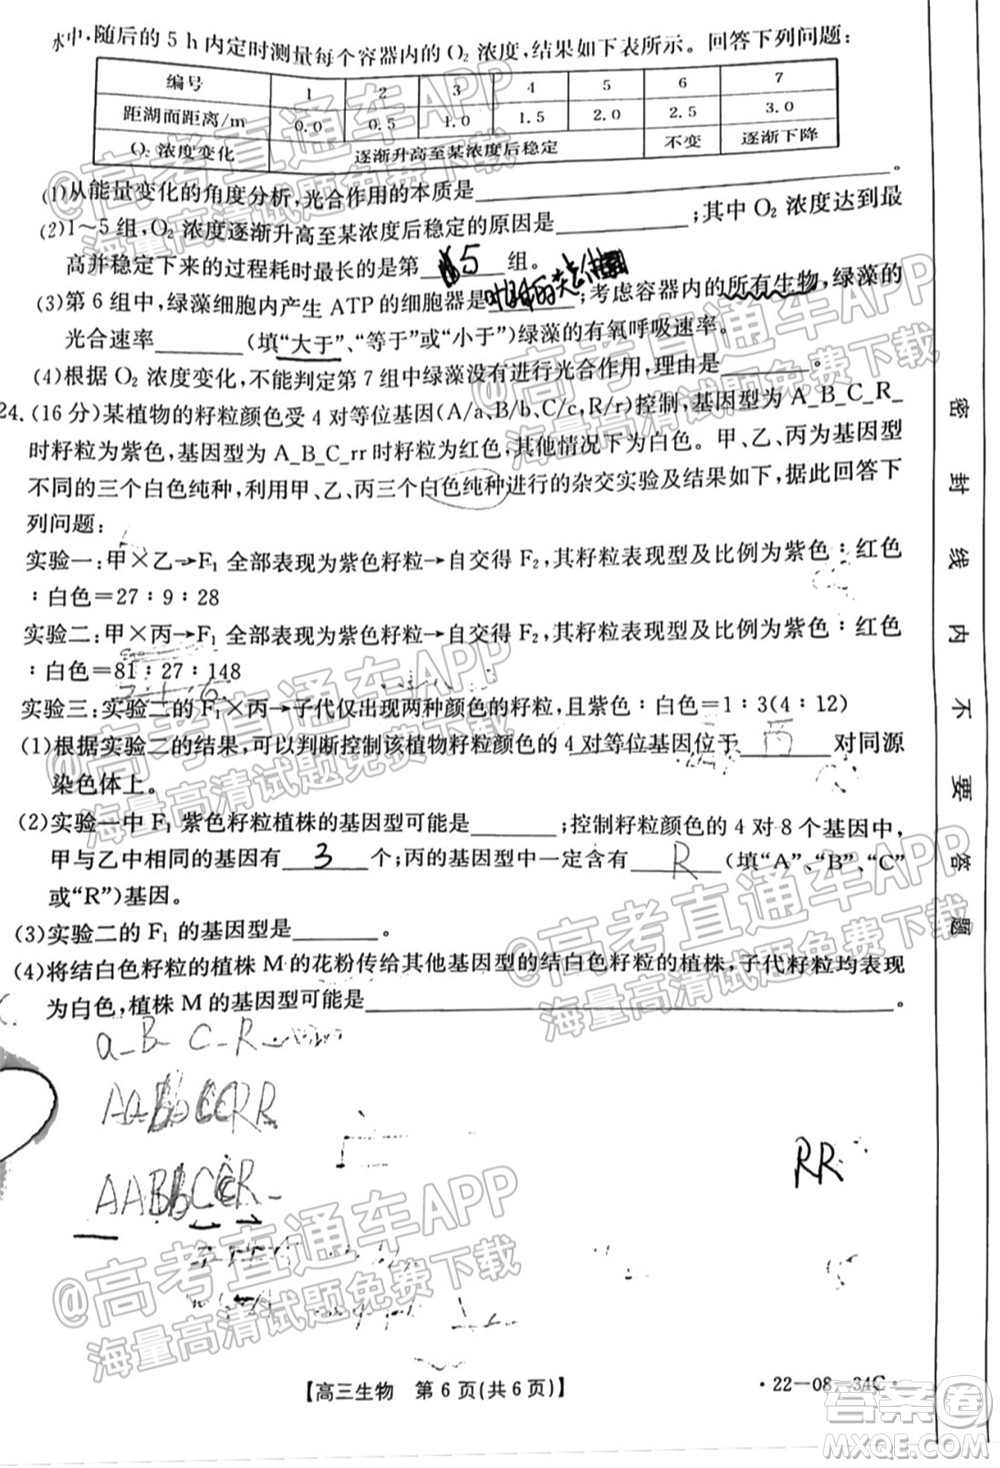 水中,随后的5 h内定时测量每个容器内的O₂浓度,结果如下表所示。回答下列问题:
编号 1 2 3 4 5 6 7
距湖面距离/m 0.0 0.5 1.0 1.5 2.0 2.5 3.0
O₂浓度变化 逐渐升高至某浓度后稳定 不变 逐渐下降
(1)从能量变化的角度分析,光合作用的本质是________。
(2)1~5组,O₂浓度逐渐升高至某浓度后稳定的原因是________;其中O₂浓度达到最
高并稳定下来的过程耗时最长的是第 5 组。
(3)第6组中,绿藻细胞内产生ATP的细胞器是________;考虑容器内的所有生物,绿藻的
光合速率________(填“大于”、“等于”或“小于”)绿藻的有氧呼吸速率。
(4)根据O₂浓度变化,不能判定第7组中绿藻没有进行光合作用,理由是________。
24.(16分)某植物的籽粒颜色受4对等位基因(A/a、B/b、C/c、R/r)控制,基因型为A_B_C_R_
时籽粒为紫色,基因型为A_B_C_rr时籽粒为红色,其他情况下为白色。甲、乙、丙为基因型
不同的三个白色纯种,利用甲、乙、丙三个白色纯种进行的杂交实验及结果如下,据此回答下
列问题:
实验一:甲×乙→F₁全部表现为紫色籽粒→自交得F₂,其籽粒表现型及比例为紫色:红色
:白色=27:9:28
实验二:甲×丙→F₁全部表现为紫色籽粒→自交得F₂,其籽粒表现型及比例为紫色:红色
:白色=81:27:148
实验三:实验二的F₁×丙→子代仅出现两种颜色的籽粒,且紫色:白色=1:3(4:12)
(1)根据实验二的结果,可以判断控制该植物籽粒颜色的4对等位基因位于________对同源
染色体上。
(2)实验一中F₁紫色籽粒植株的基因型可能是________;控制籽粒颜色的4对8个基因中,
甲与乙中相同的基因有 3 个;丙的基因型中一定含有 R (填“A”、“B”、“C”
或“R”)基因。
(3)实验二的F₁的基因型是________。
(4)将结白色籽粒的植株M的花粉传给其他基因型的结白色籽粒的植株,子代籽粒均表现
为白色,植株M的基因型可能是________。
a_B_ C_R_
RR
【高三生物 第6页(共6页)】
·22-08-34C·
密封线内不要答题
@高考直通车APP
海量高清试题免费下载
@高考直通车APP
海量高清试题免费下载
@高考直通车APP
海量高清试题免费下载
@高考直通车APP
海量高清试题免费下载
@高考直通车APP
海量高清试题免费下载
答案圈
MXQE.COM